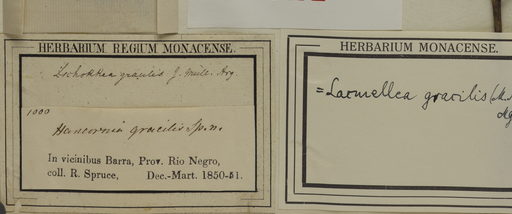 HERBARIUM REGIUM MONACENSE.
Zschokkea gracilis J. Müll. Arg.
1000
Hancornia gracilis Sp. n.
In vicinibus Barra, Prov. Rio Negro,
coll. R. Spruce, Dec.-Mart. 1850-51.
HERBARIUM MONACENSE.
=Lacmellea gracilis (M.